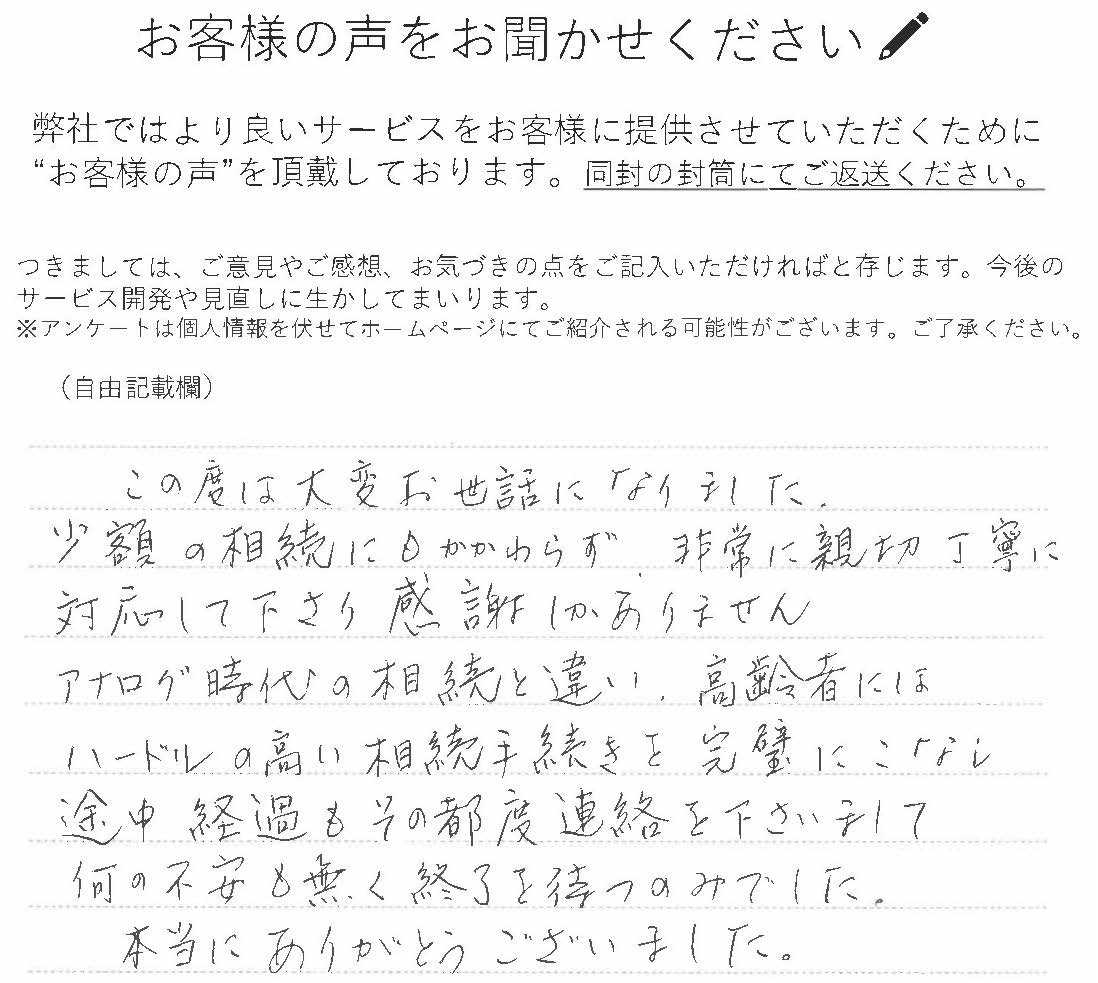 お客様の声をお聞かせください
弊社ではより良いサービスをお客様に提供させていただくために
“お客様の声”を頂戴しております。同封の封筒にてご返送ください。
つきましては、ご意見やご感想、お気づきの点をご記入いただければと存じます。今後の
サービス開発や見直しに生かしてまいります。
※アンケートは個人情報を伏せてホームページにてご紹介される可能性がございます。ご了承ください。
（自由記載欄）
この度は大変お世話になりました.
少額の相続にもかかわらず、非常に親切丁寧に
対応して下さり感謝しかありません
アナログ時代の相続と違い、高齢者には
ハードルの高い相続手続きを完璧にこなし
途中経過もその都度連絡を下さいまして
何の不安も無く終了を待つのみでした。
本当にありがとうございました。